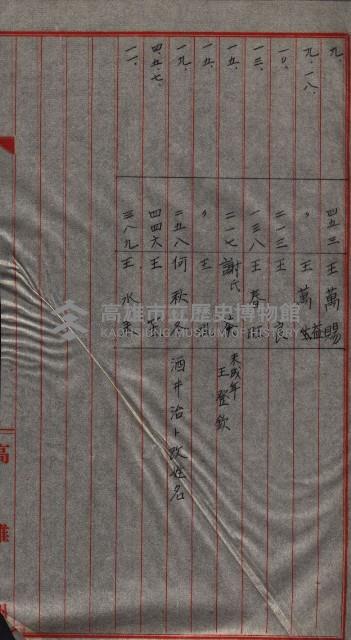 九、 四五三 王萬賜
九、一八、 〃 王萬益
一〇、 二一三 王 良
一三、 一三八 王春旺
一五、 二一七 謝氏 未成年 王登欽
一五、 〃 王
一九、 二五八 何秋冬 酒井治ト改姓名
四、五、七、 四四六 王
一一、 三八九 王水來
高雄市立歷史博物館
KAOHSIUNG MUSEUM OF HISTORY
高雄州